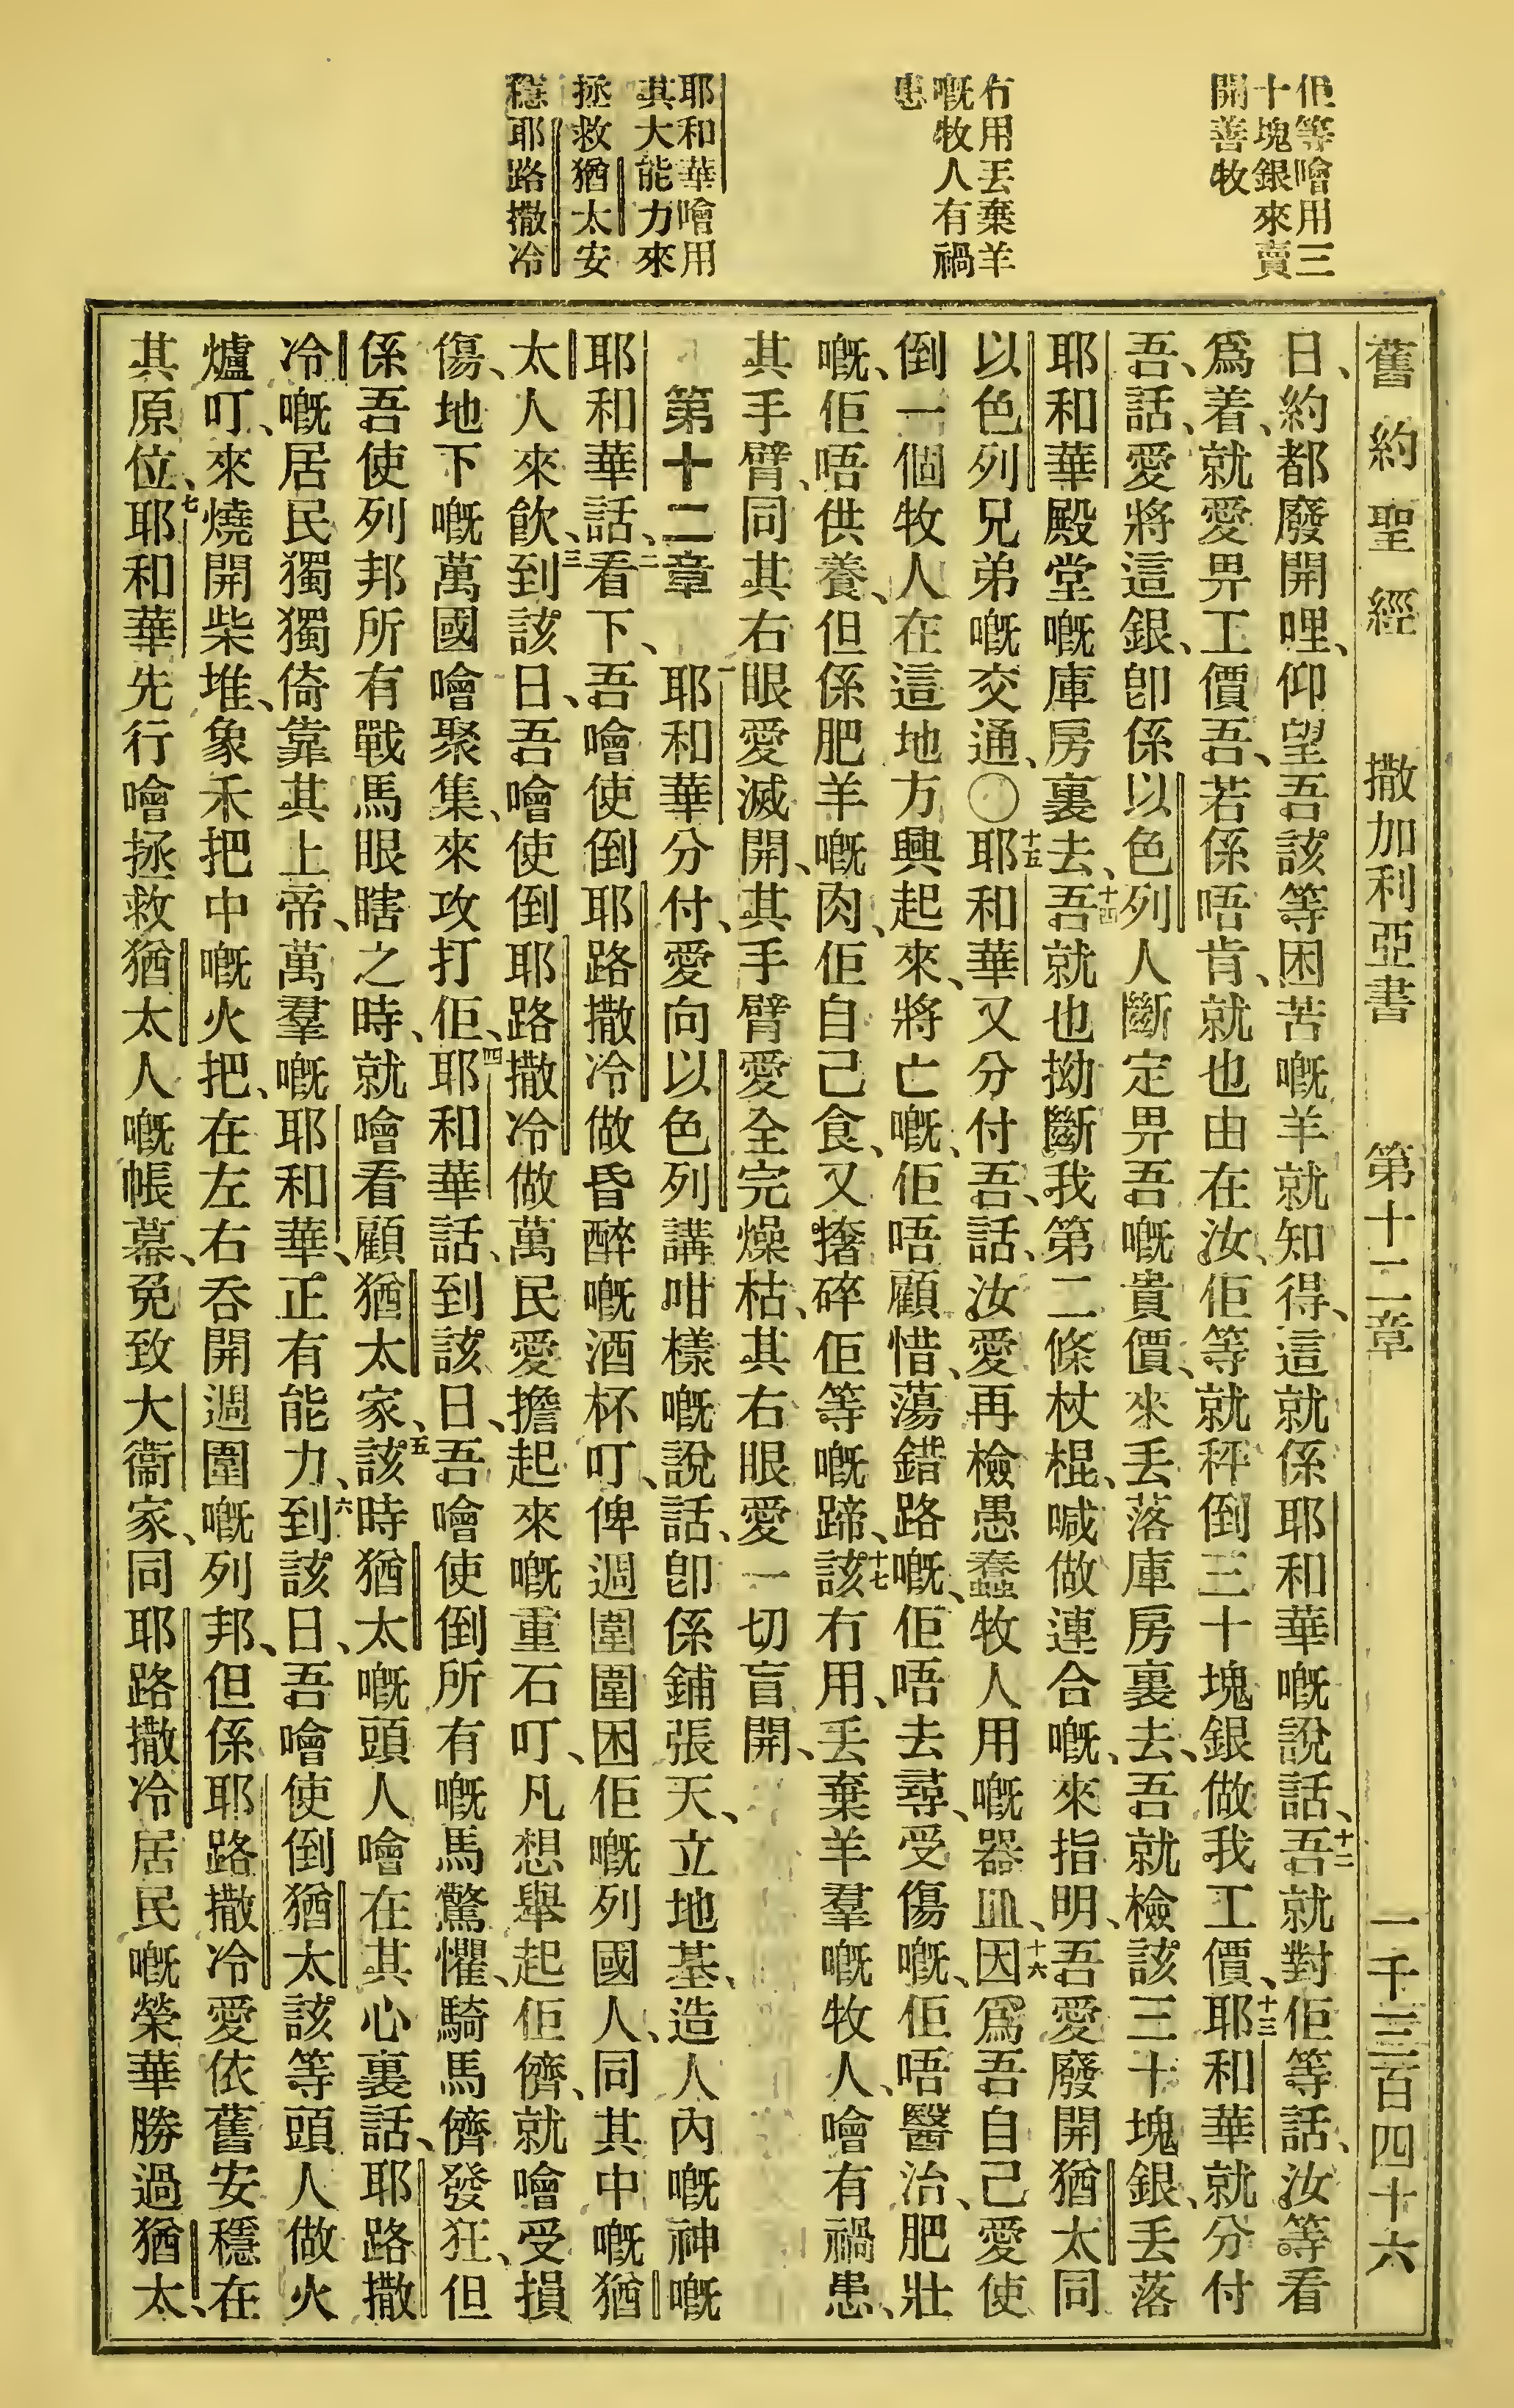 佢等噲用三
十塊銀來賣
開善牧
冇用丟棄羊
嘅牧人有禍
患
耶和華噲用
其大能力來
拯救猶太安
穩耶路撒冷
舊約聖經 撒加利亞書 第十二章 一千三百四十六
日、約都廢開哩、仰望吾該等困苦嘅羊就知得、這就係耶和華嘅說話、十二吾就對佢等話、汝等看
爲着、就愛畀工價吾、若係唔肯、就也由在汝、佢等就秤倒三十塊銀做我工價、十三耶和華就分付
吾、話、愛將這銀、卽係以色列人斷定畀吾嘅貴價、來丟落庫房裏去、吾就檢該三十塊銀、丟落
耶和華殿堂嘅庫房裏去、十四吾就也拗斷我第二條杖棍、喊做連合嘅、來指明、吾愛廢開猶太同
以色列兄弟嘅交通、〇十五耶和華又分付吾、話、汝愛再檢愚蠢牧人用嘅器皿、十六因爲吾自己愛使
倒一個牧人在這地方興起來、將亡嘅、佢唔顧惜、蕩錯路嘅、佢唔去尋、受傷嘅、佢唔醫治、肥壯
嘅、佢唔供養、但係肥羊嘅肉、佢自己食、又撦碎佢等嘅蹄、十七該冇用、丟棄羊羣嘅牧人、噲有禍患、
其手臂、同其右眼愛滅開、其手臂愛全完燥枯、其右眼愛一切盲開、
第十二章 一耶和華分付、愛向以色列講咁樣嘅說話、卽係鋪張天、立地基、造人內嘅神嘅
耶和華話、二看下、吾噲使倒耶路撒冷做昏醉嘅酒杯叮、俾週圍圍困佢嘅列國人、同其中嘅猶
太人來飲、三到該日、吾噲使倒耶路撒冷做萬民愛擔起來嘅重石叮、凡想舉起佢儕、就噲受損
傷、地下嘅萬國噲聚集、來攻打佢、四耶和華話、到該日、吾噲使倒所有嘅馬驚懼、騎馬儕發狂、但
係吾使列邦所有戰馬眼瞎之時、就噲看顧猶太家、五該時猶太嘅頭人噲在其心裏話、耶路撒
冷嘅居民獨獨倚靠其上帝、萬羣嘅耶和華、正有能力、六到該日、吾噲使倒猶太該等頭人做火
爐叮、來燒開柴堆、象禾把中嘅火把、在左右吞開週圍嘅列邦、但係耶路撒冷愛依舊安穩在
其原位、七耶和華先行噲拯救猶太人嘅帳幕、免致大衞家、同耶路撒冷居民嘅榮華勝過猶太、